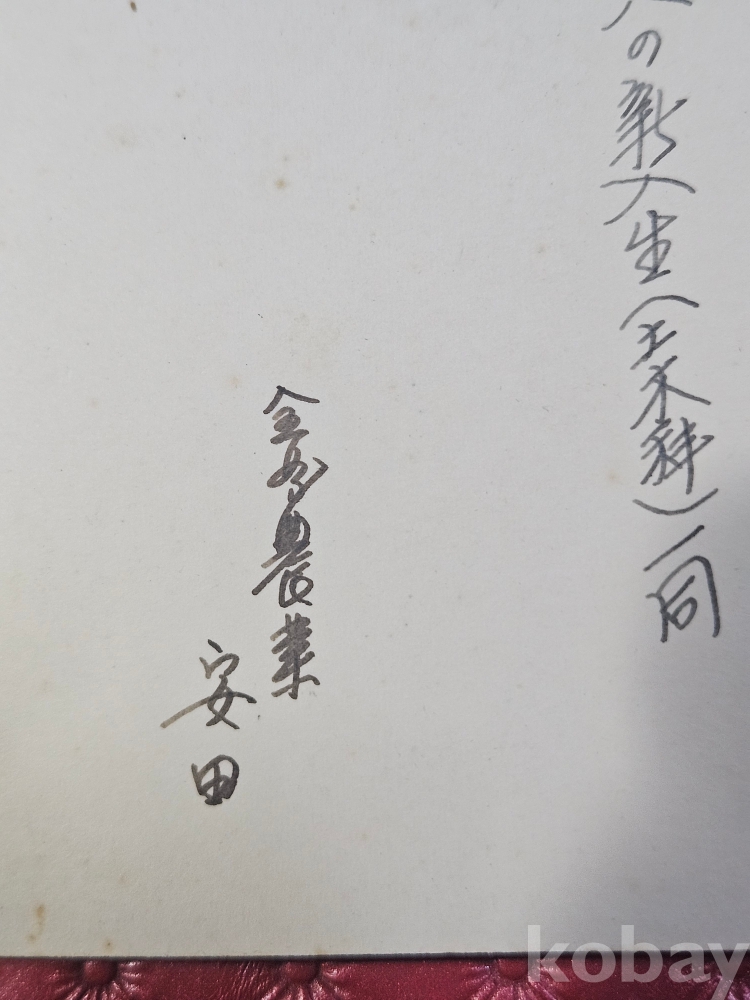 の新入生(土木科)一同
農業
安田
kobay